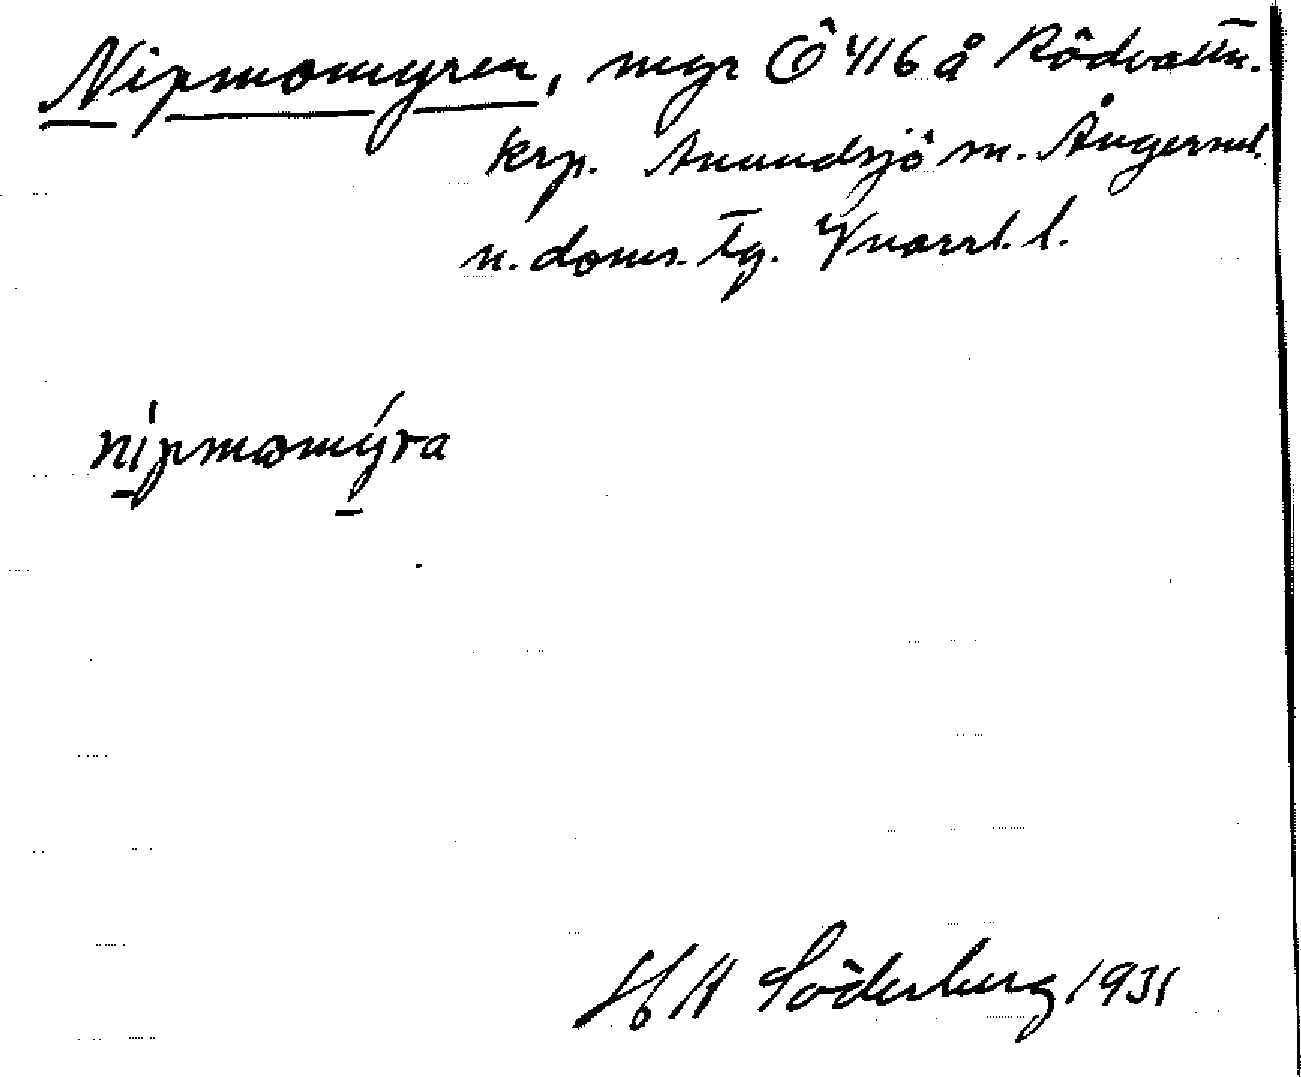 Nipmomyren, mgr Ö 416 å Rödvattn.
krp. Anundsjö sn. Ångerml.
n. doms. tg. Vnorrl. l.
nipmomýra
H A Söderberg 1931